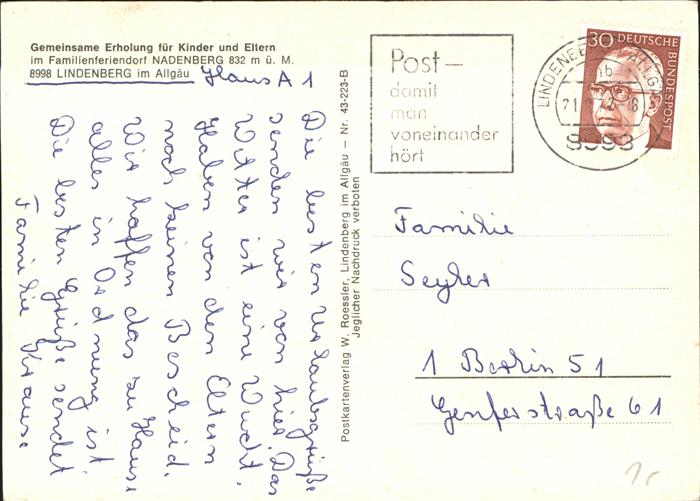 Gemeinsame Erholung für Kinder und Eltern
im Familienferiendorf NADENBERG 832 m ü. M.
8998 LINDENBERG im Allgäu Haus A 1
Die besten Urlaubsgrüße
senden wir von hier. Das
Wetter ist eine Wucht.
Haben von den Eltern
noch keinen Bescheid.
Wir hoffen das zu Hause
alles in Ordnung ist.
Die besten Grüße sendet
Familie Krause
Postkartenverlag W. Roessler, Lindenberg im Allgäu – Nr. 43-223-B
Jeglicher Nachdruck verboten
Post –
damit
man
voneinander
hört
30 DEUTSCHE
BUNDESPOST
8993
Familie
Seyler
1 Berlin 51
Genferstraße 61